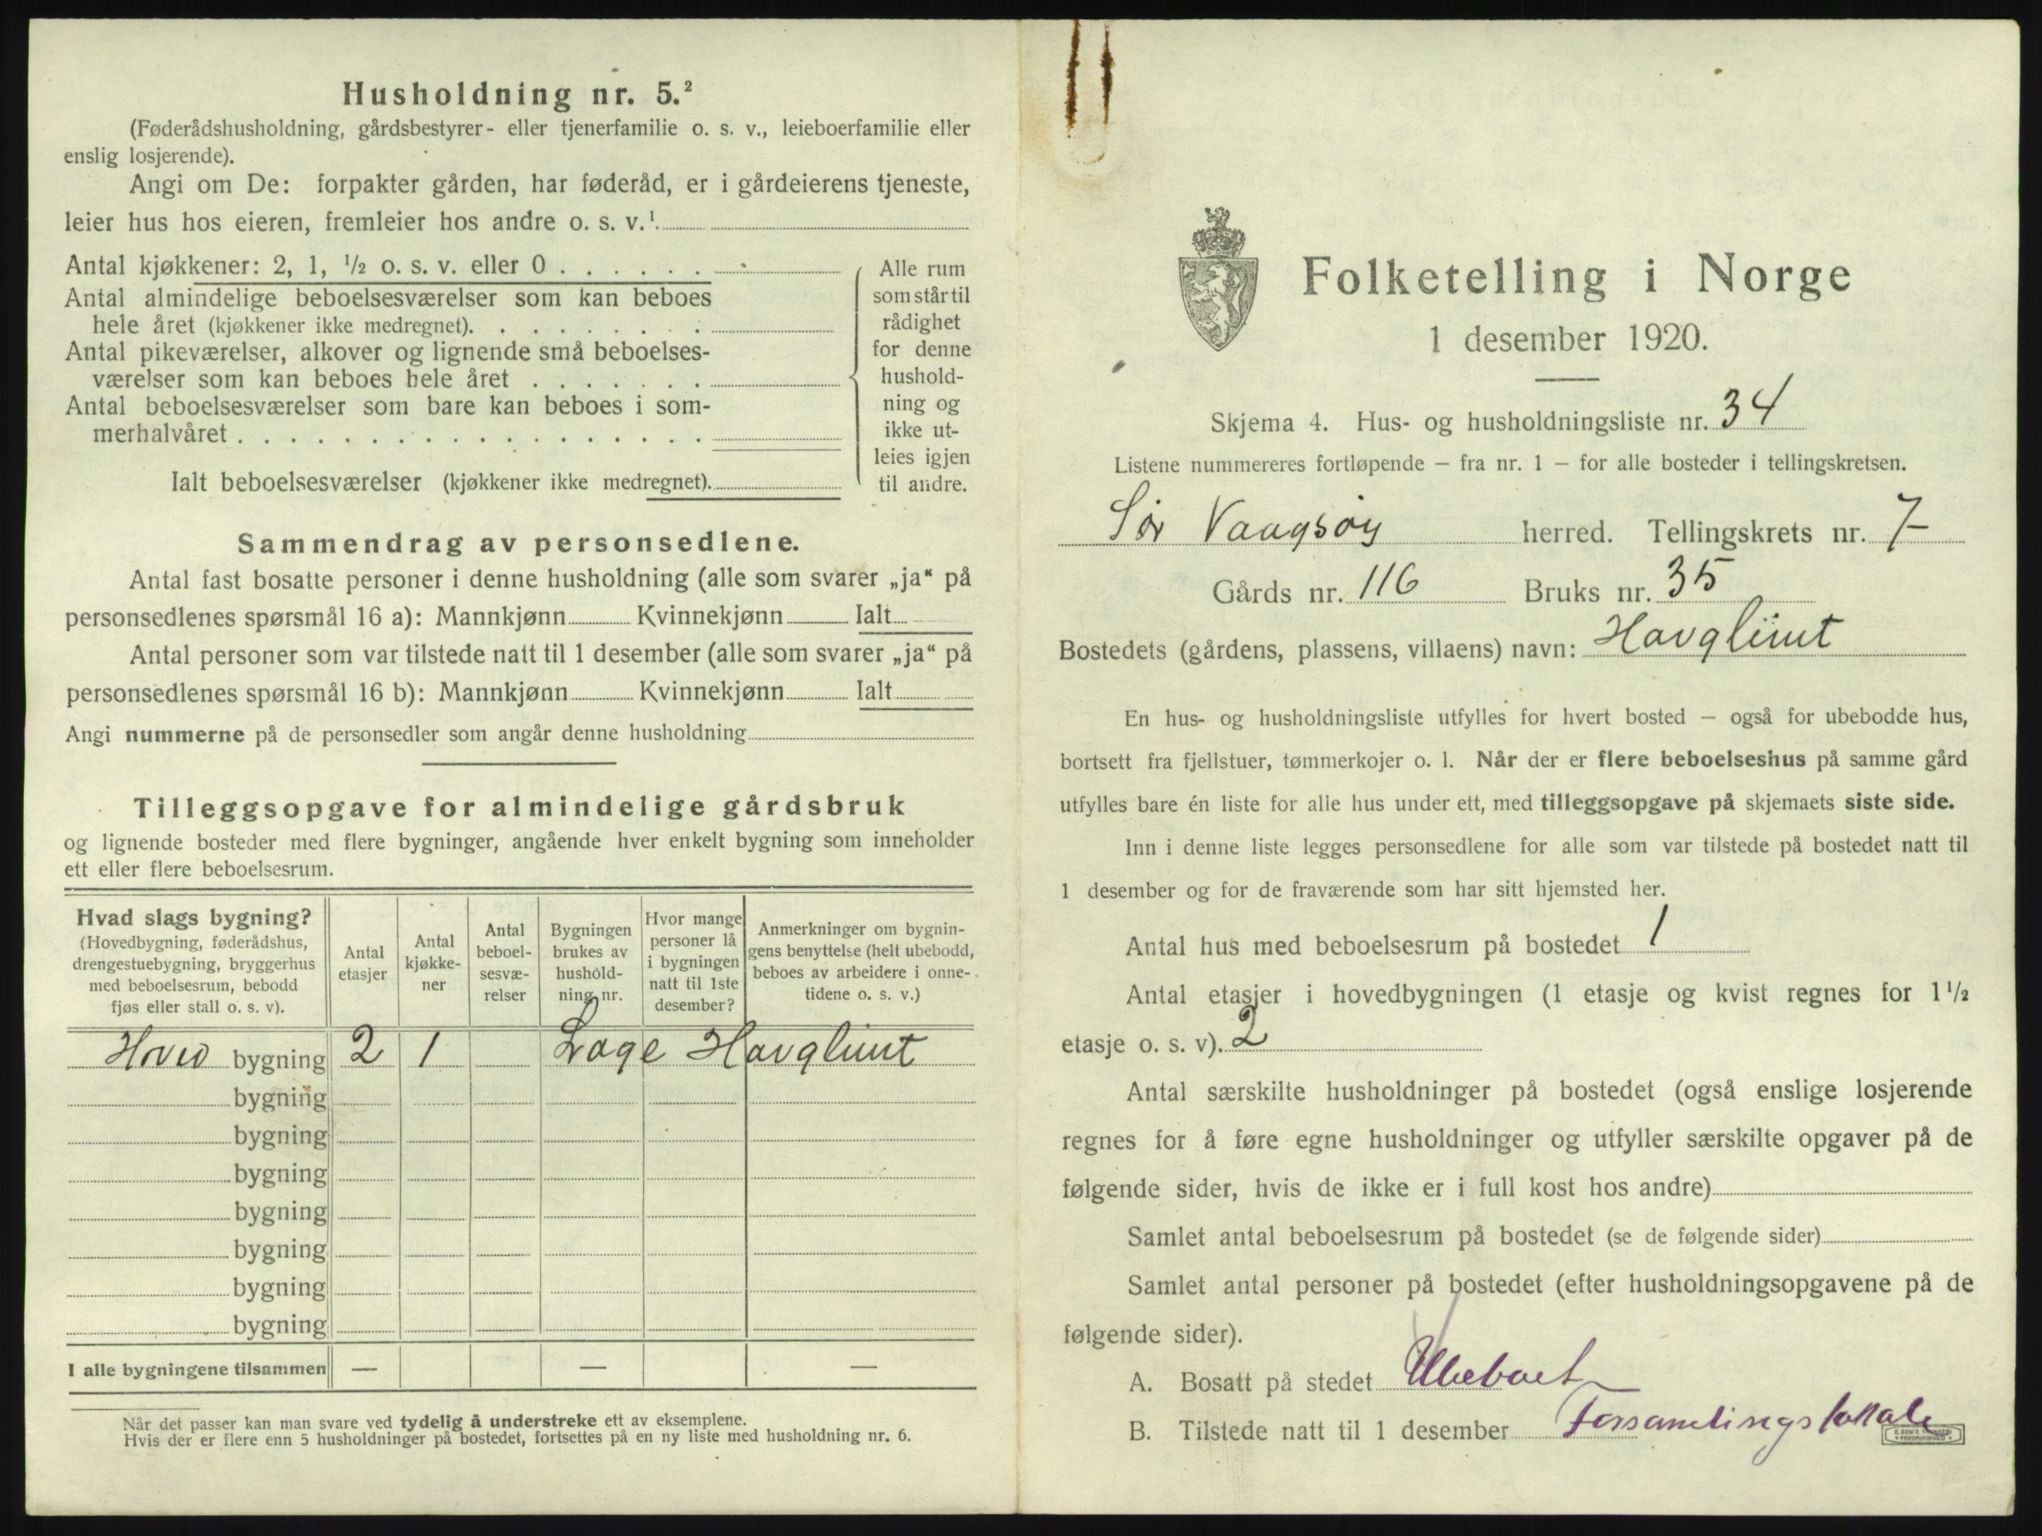 Husholdning nr. 5.²
(Føderådshusholdning, gårdsbestyrer- eller tjenerfamilie o. s. v., leieboerfamilie eller
enslig losjerende).
Angi om De: forpakter gården, har føderåd, er i gårdeierens tjeneste,
leier hus hos eieren, fremleier hos andre o. s. v.¹
Antal kjøkkener: 2, 1, ½ o. s. v. eller 0
Antal almindelige beboelsesværelser som kan beboes
hele året (kjøkkener ikke medregnet).
Antal pikeværelser, alkover og lignende små beboelses-
værelser som kan beboes hele året
Antal beboelsesværelser som bare kan beboes i som-
merhalvåret
Ialt beboelsesværelser (kjøkkener ikke medregnet).
Alle rum
som står til
rådighet
for denne
hushold-
ning og
ikke ut-
leies igjen
til andre.
Sammendrag av personsedlene.
Antal fast bosatte personer i denne husholdning (alle som svarer „ja“ på
personsedlenes spørsmål 16 a): Mannkjønn Kvinnekjønn Ialt
Antal personer som var tilstede natt til 1 desember (alle som svarer „ja“ på
personsedlenes spørsmål 16 b): Mannkjønn Kvinnekjønn Ialt
Angi nummerne på de personsedler som angår denne husholdning
Tilleggsopgave for almindelige gårdsbruk
og lignende bosteder med flere bygninger, angående hver enkelt bygning som inneholder
ett eller flere beboelsesrum.
Hvad slags bygning?
(Hovedbygning, føderådshus,
drengestuebygning, bryggerhus
med beboelsesrum, bebodd
fjøs eller stall o. s. v).
Antal
etasjer
Antal
kjøkke-
ner
Antal
beboel-
sesvæ-
relser
Bygningen
brukes av
hushold-
ning nr.
Hvor mange
personer lå
i bygningen
natt til 1ste
desember?
Anmerkninger om bygnin-
gens benyttelse (helt ubebodd,
beboes av arbeidere i onne-
tidene o. s. v.)
Hoved bygning 2 1 Loge Havglimt
bygning
bygning
bygning
bygning
bygning
bygning
bygning
I alle bygningene tilsammen — — —
Når det passer kan man svare ved tydelig å understreke ett av eksemplene.
Hvis der er flere enn 5 husholdninger på bostedet, fortsettes på en ny liste med husholdning nr. 6.
Folketelling i Norge
1 desember 1920.
Skjema 4. Hus- og husholdningsliste nr. 34
Listene nummereres fortløpende – fra nr. 1 – for alle bosteder i tellingskretsen.
Sør Vaagsøy herred. Tellingskrets nr. 7
Gårds nr. 116 Bruks nr. 35
Bostedets (gårdens, plassens, villaens) navn: Havglimt
En hus- og husholdningsliste utfylles for hvert bosted – også for ubebodde hus,
bortsett fra fjellstuer, tømmerkojer o. l. Når der er flere beboelseshus på samme gård
utfylles bare én liste for alle hus under ett, med tilleggsopgave på skjemaets siste side.
Inn i denne liste legges personsedlene for alle som var tilstede på bostedet natt til
1 desember og for de fraværende som har sitt hjemsted her.
Antal hus med beboelsesrum på bostedet 1
Antal etasjer i hovedbygningen (1 etasje og kvist regnes for 1½
etasje o. s. v). 2
Antal særskilte husholdninger på bostedet (også enslige losjerende
regnes for å føre egne husholdninger og utfyller særskilte opgaver på de
følgende sider, hvis de ikke er i full kost hos andre)
Samlet antal beboelsesrum på bostedet (se de følgende sider)
Samlet antal personer på bostedet (efter husholdningsopgavene på de
følgende sider).
A. Bosatt på stedet Ubeboet
B. Tilstede natt til 1 desember Forsamlingslokale